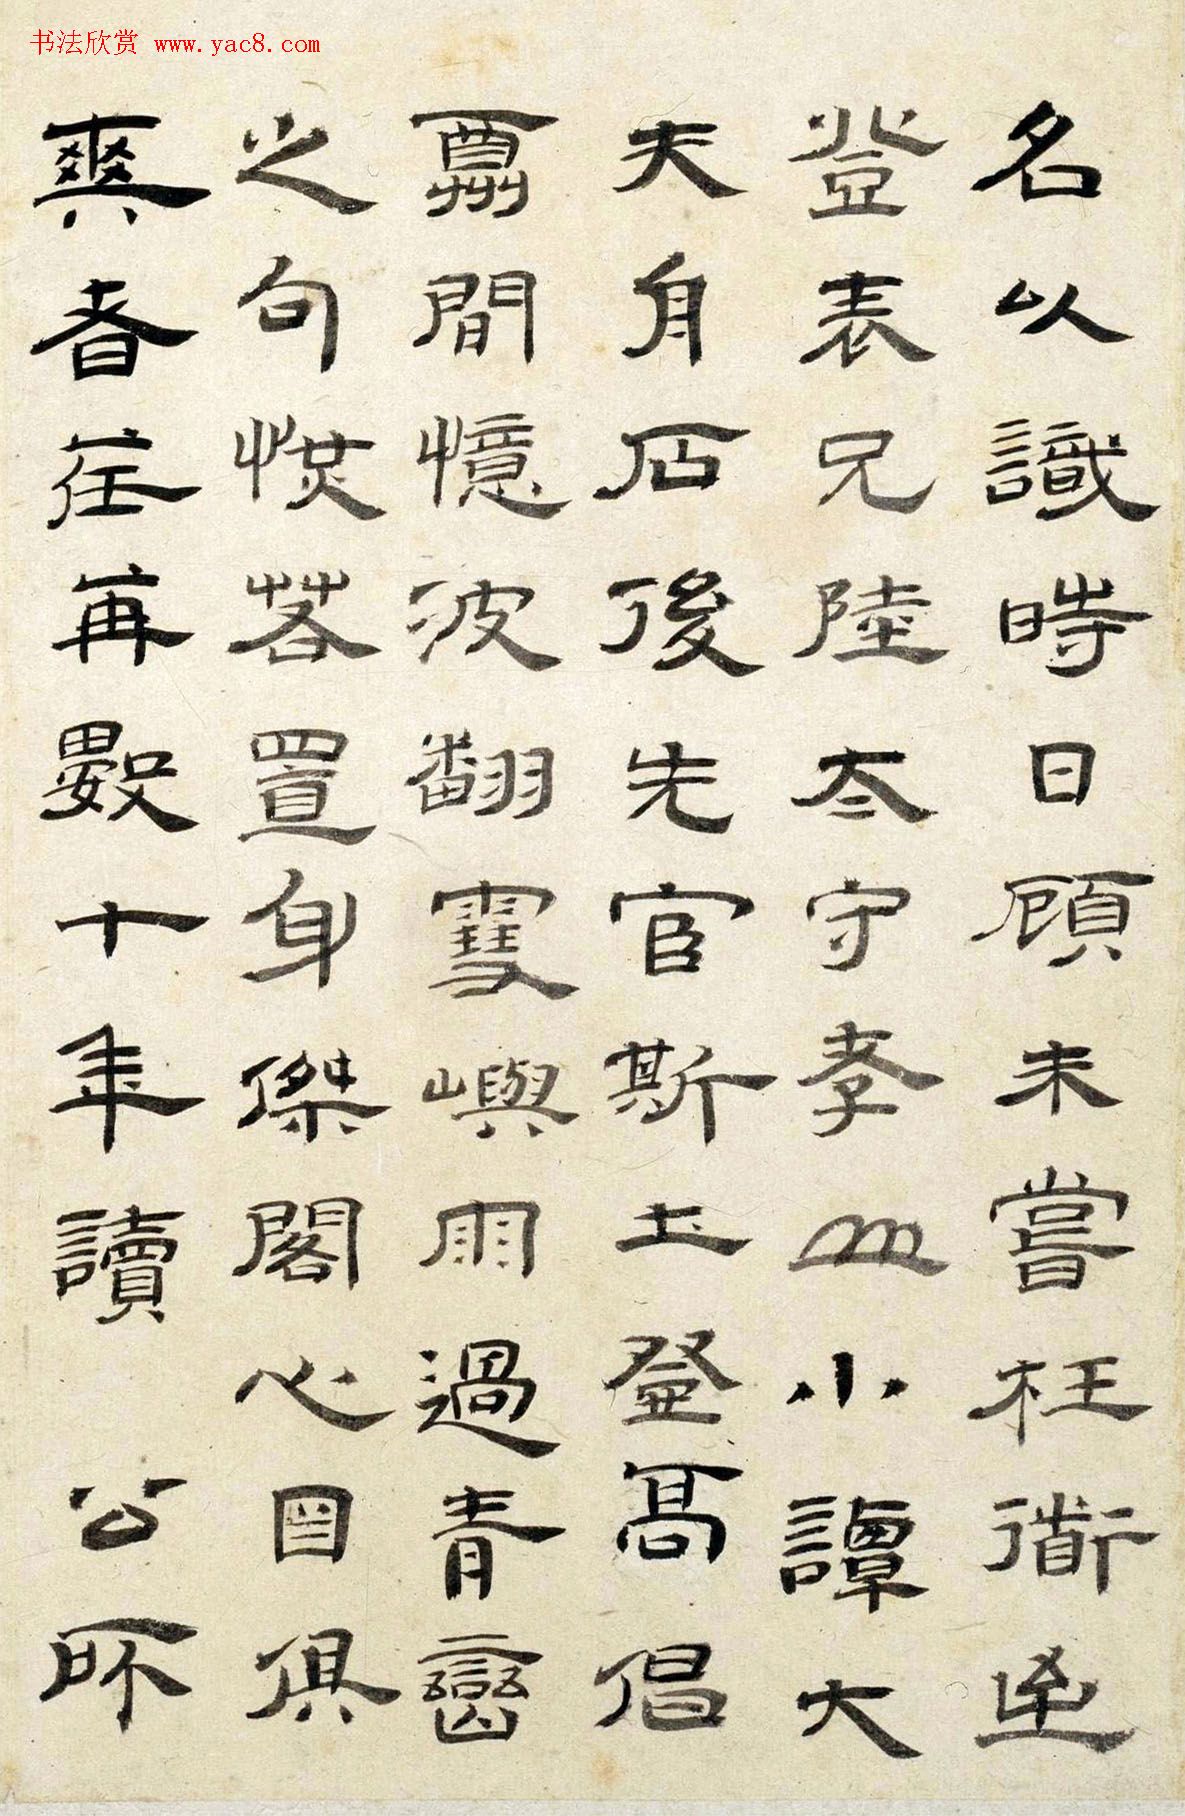 书法欣赏 www.yac8.com
名以識時日顧未嘗枉道
登表兄陸太守孝山小譚大
夫身石後先官斯土登高倡
間憶波翻雪嶼雨過青巒
之句恍若置身傑閣心目俱
爽者荏苒數十年讀公所